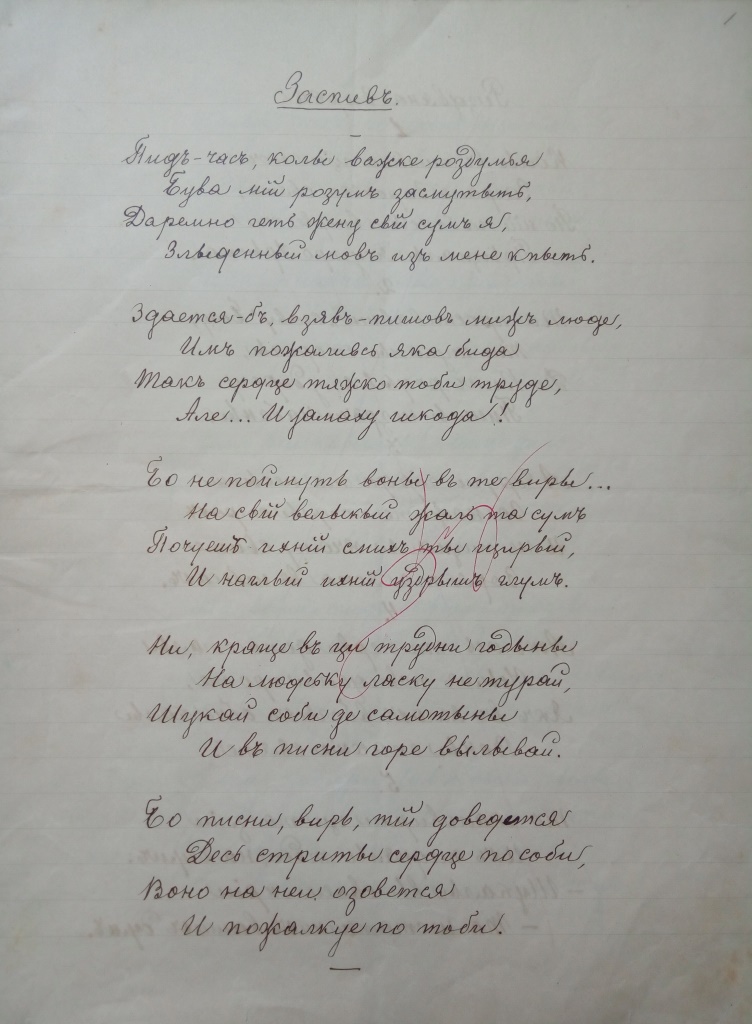 Заспивъ.
Пидъ-часъ, колы важке роздумья
Бува мій розумъ засмутыть,
Даремно геть жену свій сумъ я,
Злыденный мовъ изъ мене кпыть.
Здается-бъ, взявъ-пишовъ мижъ люде,
Имъ пожаливсь яка бида
Такъ сердце тяжко тоби труде,
Але... И замаху шкода!
Бо не поймуть воны въ те вирь...
На свій велыкый жаль та сумъ
Почуешъ ихній смихъ ты щирый,
И наглый ихній уздрышъ глумъ.
Ни, краще въ ци трудни годыны
На людську ласку не турай,
Шукай соби де самотыны
И въ писни горе вылывай.
Бо писни, вирь, тій доведется
Десь стриты сердце по соби,
Воно на неи озовется
И пожалкуе по тоби.